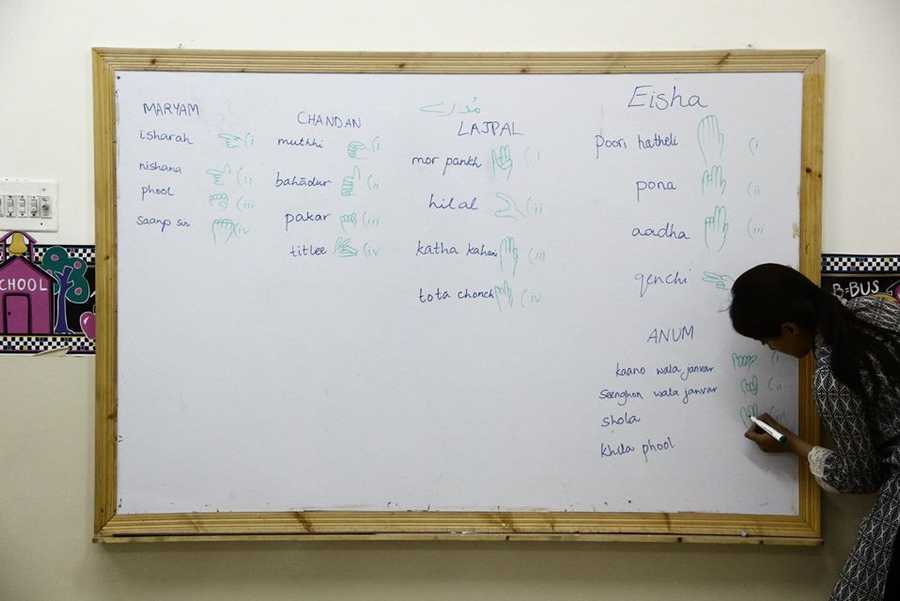 MARYAM
isharah (i
nishana (ii
phool (iii
saanp sir (iv
CHANDAN
muthhi (i
bahādur (ii
pakar (iii
titlee (iv
مُدرے
LAJPAL
mor pankh (i
hilal (ii
katha kahen (iii
tota chonch (iv
Eisha
Poori hatheli (i
pona (ii
aadha (iii
qenchi
ANUM
kaano wala janvar (i
Seenghon wala janvar (ii
Shola
khila phool
SCHOOL
B=BUS